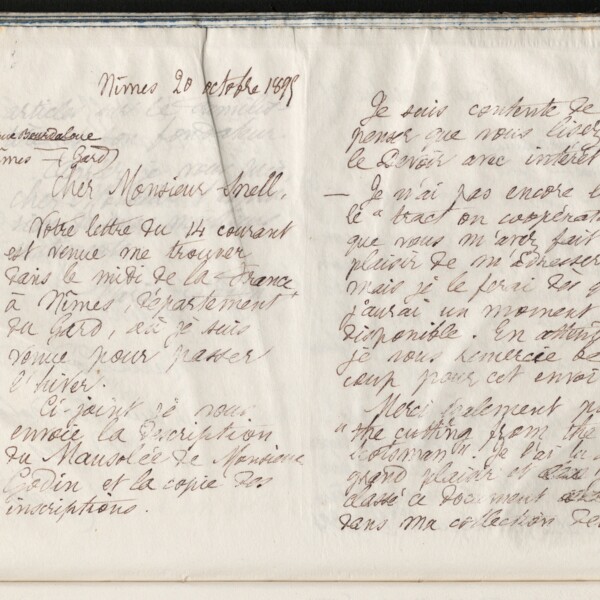 Nîmes 20 octobre 1895
rue Bourdaloue
Nîmes - (Gard)
Cher Monsieur Snell,
Votre lettre du 14 courant
est venue me trouver
dans le midi de la France
à Nîmes, département
du Gard, où je suis
venue pour passer
l'hiver.
Ci-joint je vous
envoie la description
du Mausolée de Monsieur
Godin et la copie des
inscriptions.
Je suis contente de
penser que vous liser
le Devoir avec intérêt
— Je n'ai pas encore
le "tract on coopérat
que vous m'avez fait
plaisir de m'adresser
mais je le ferai dès q
j'aurai un moment
disponible. En attend
je vous remercie be
coup pour cet envoi
Merci également po
"the cutting from the
Scotsman". Je l'ai lu
grand plaisir et
classé ce document
dans ma collection de